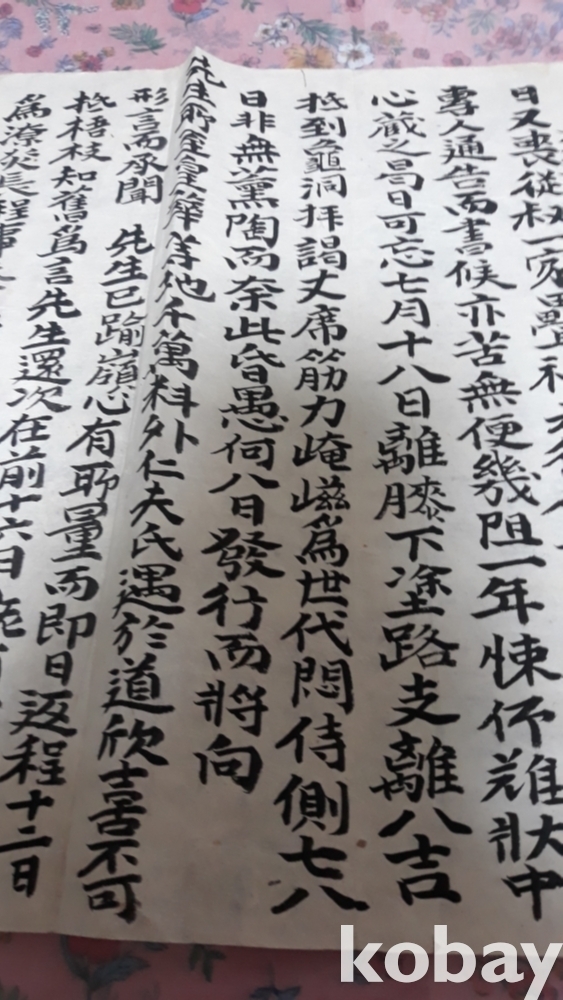 日又喪從叔一家
專人通告而書候亦苦無便幾阻一年悚仄難狀中
心藏之曷日可忘七月十八日離膝下塗路支離八吉
抵到龜洞拜謁丈席筋力崦嵫爲世代悶侍側七八
日非無薰陶而奈此昏愚何八日發行而將向
先生所 千萬料外仁夫氏遇於道欣喜不可
形言而承聞 先生已踰嶺心有所量而即日返程十二日
抵梧枝知舊爲言先生還次在前十六日
爲潦
kobay